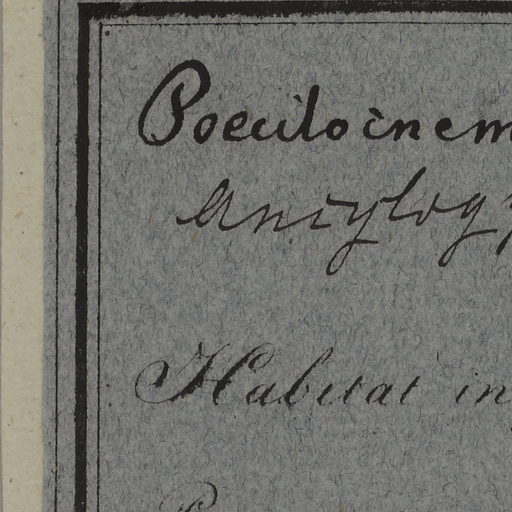 Poecilocnem
Ancylog
Habitat in